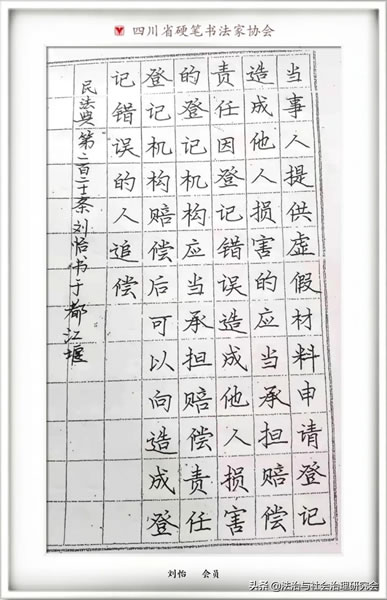 四川省硬笔书法家协会
当事人提供虚假材料申请登记
造成他人损害的应当承担赔偿
责任因登记错误造成他人损害
的登记机构应当承担赔偿责任
登记机构赔偿后可以向造成登
记错误的人追偿
民法典第二百二十二条刘怡书于都江堰
刘怡 会员
头条@法治与社会治理研究会